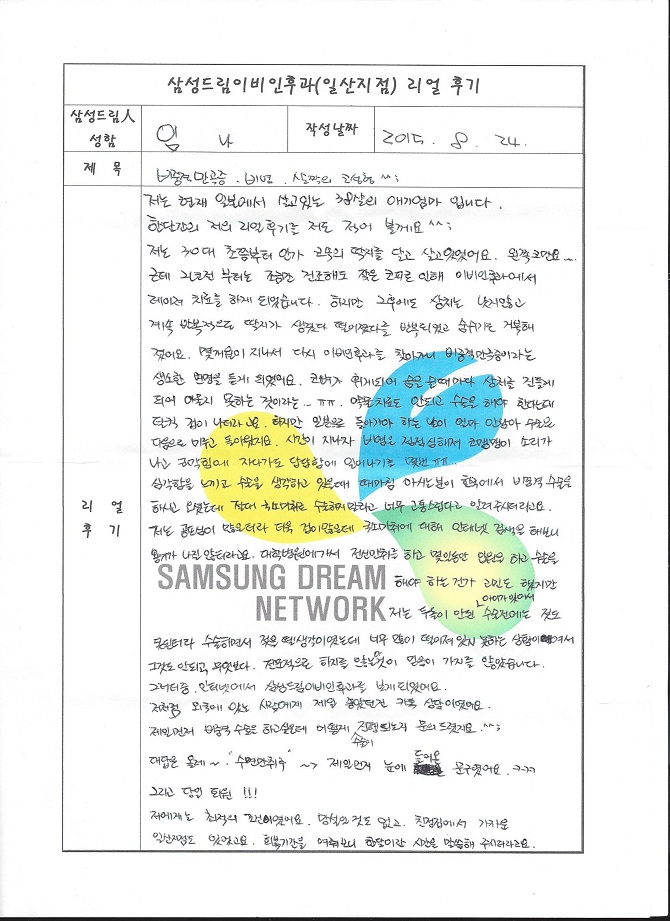 삼성드림이비인후과(일산지점) 리얼 후기
삼성드림人
성함
임 나
작성날짜
2015. 8. 24.
제 목
비중격만곡증. 비염. 살짝의 코성형 ^^;
리 얼
후 기
저는 현재 일본에서 살고있는 38살의 애기엄마 입니다.
한달간의 저의 리얼후기를 저도 적어 볼게요 ^^;
저는 30대 초쯤부터 인가 코속의 딱지를 달고 살고있었어요. 왼쪽코만요~
근데 2년전 부터는 조금만 건조해도 잦은 코피로 인해 이비인후과에서
레이져 치료를 하게 되었습니다. 하지만 그후에도 상처는 낫지않고
계속 반복적으로 딱지가 생겼다 떨어졌다를 반복되었고 숨쉬기도 거북해
졌어요. 몇개월이 지나서 다시 이비인후과를 찾아가니 비중격만곡증이라는
생소한 병명을 듣게 되었어요. 코뼈가 휘게되어 숨을 쉴때마다 상처를 건들게
되어 아물지 못하는 것이라는.. ㅠㅠ. 약물치료도 안되고 수술을 해야 한다는데
덜컥 겁이 나더라고요. 하지만 일본으로 돌아가야 하는 날이 얼마 안남아 수술은
다음으로 미루고 돌아왔지요. 시간이 지나자 비염은 점점심해서 코맹맹이 소리가
나고 코막힘에 자다가도 답답함에 일어나기도 몇번 ㅠㅠ..
심각함을 느끼고 수술을 생각하고 있을때 때마침 아시는분이 한국에서 비중격 수술을
하시고 오셨는데 절대 국소마취로 수술하지말라고 너무 고통스럽다고 알려주시더라고요.
저는 겁도많이 많은터라 더욱 겁이많은데 국소마취에 대해 인터넷 검색을 해보니
용기가 나질 않더라고요. 대학병원에가서 전신마취를 하고 몇일동안 입원을 하고 수술을
SAMSUNG DREAM
NETWORK
해야 하는건가 고민도 했지만
아이가 있어서
저는 두돌이 안된 수술전에는 젖도
못뗀터라 수술하면서 젖을 뗄생각이였는데 너무 많이 떨어져 있지 못하는 상황이여서
그것도 안되고, 무엇보다. 전문적으로 하지를 않는것이 믿음이 가지를 않았습니다.
그러던중. 인터넷에서 삼성드림이비인후과를 보게되었어요.
저처럼 외국에 있는 사람에게 제일 좋았던건 카톡 상담 이였어요.
제일먼저 비중격 수술은 하고싶은데 어떻게 수술이 진행되는지 문의드렸지요. ^^;
대답은 올레~ "수면마취후" ~> 제일먼저 눈에 들어온 문구였어요. ㅋㅋㅋ
그리고 당일 퇴원 !!!
저에게는 최적의 조건이였어요. 망설일것도 없고. 친정집에서 가까운
일산지점도 있었고요. 회복기간을 여쭤보니 한달이란 시간을 말씀해 주시더라고요.